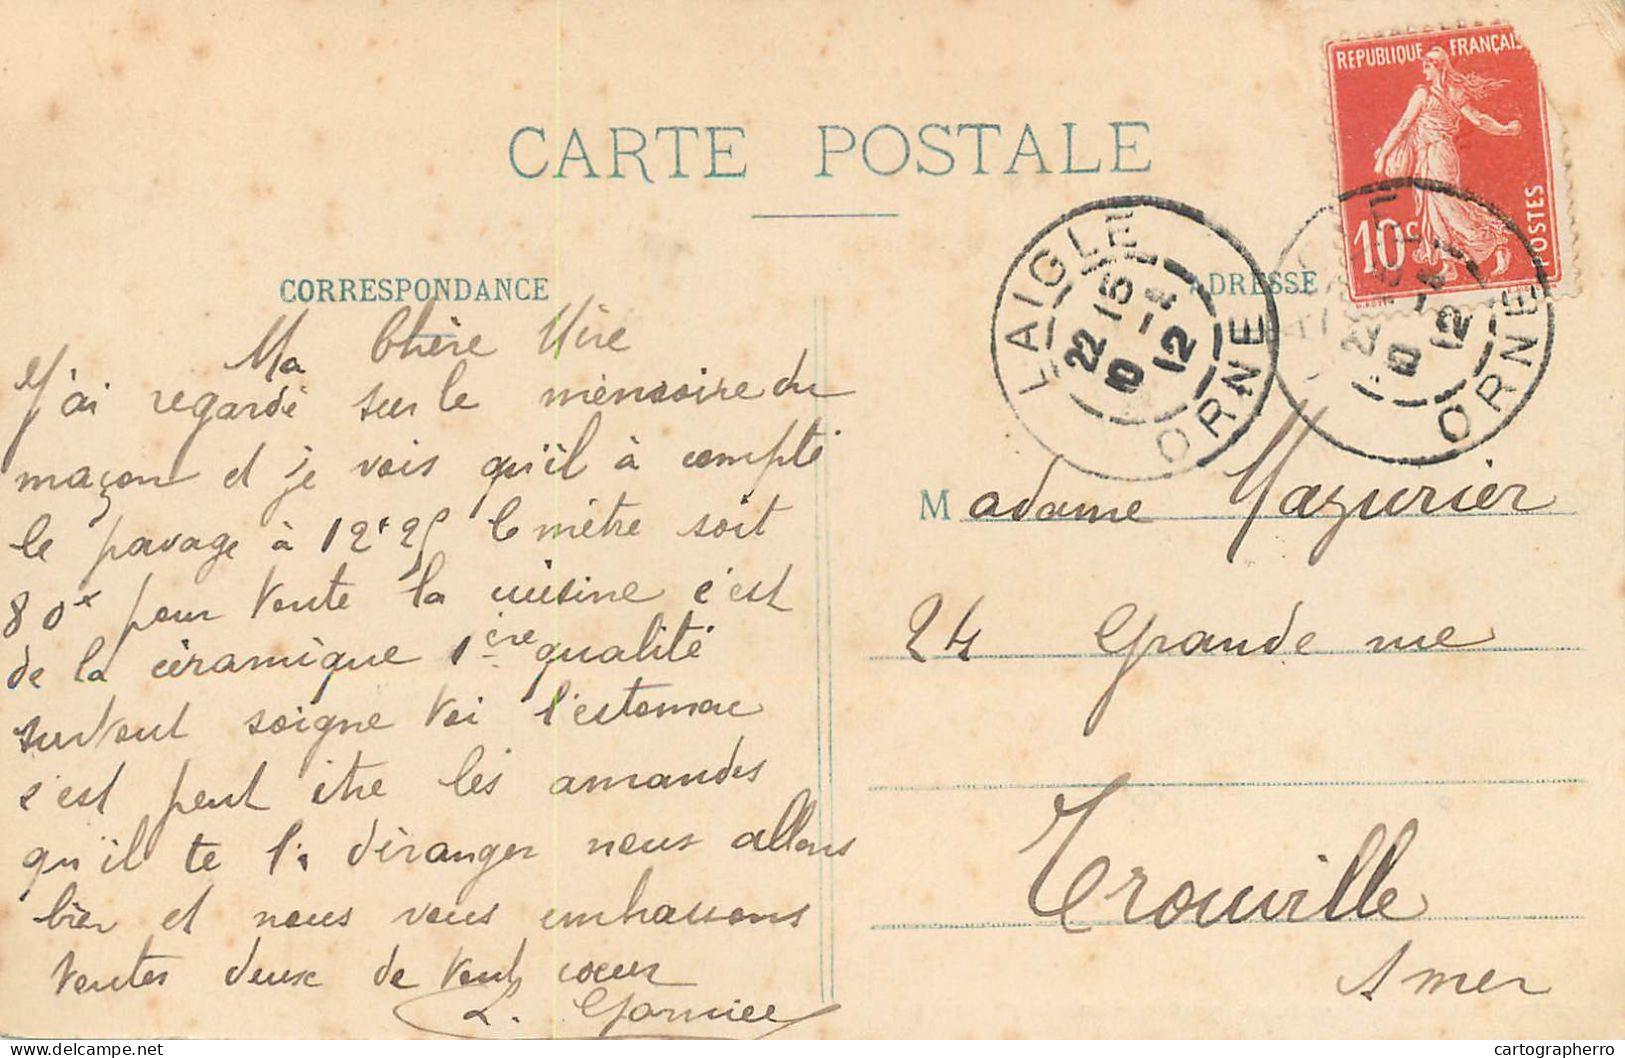 CARTE POSTALE
CORRESPONDANCE
ADRESSE
REPUBLIQUE FRANÇAIS
10c
POSTES
LAIGLE
22 15
10 - 4
12
ORNE
22
10 - 4
12
ORNE
Ma Chère Mère
J'ai regardé sur le mémoire du
maçon et je vois qu'il à compté
le pavage à 12f25 le mètre soit
80f pour toute la cuisine c'est
de la céramique 1ère qualité
surtout soigne toi l'estomac
c'est peut être les amandes
qu'il te l'a déranger nous allons
bien et nous vous embrassons
toutes deux de tout coeur
L.
Madame Mazurier
24 Grande rue
Trouville
s mer
cartographerro